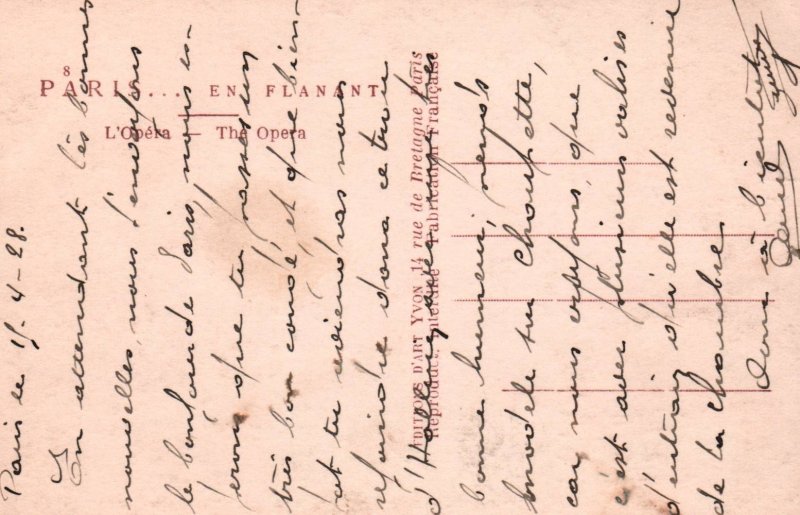 8
PARIS... EN FLANANT
L'Opéra — The Opera
EDITIONS D'ART YVON 14 rue de Bretagne Paris
Reproduct. interdite Fabrication Française
Paris le 15-4-28.
En attendant tes bonnes
nouvelles, nous t'envoyons
le bonjour de Paris, nous es-
pérons que tu passes un
très bon congé, et que bien-
tôt tu reviendras nous
rejoindre dans ce trou
d'
bonne humeur, prends
modèle sur Choupette,
car nous croyons, que
c'est avec plusieurs valises
d'entrain qu'elle est revenue
de la Chambre.
Donc à bientôt